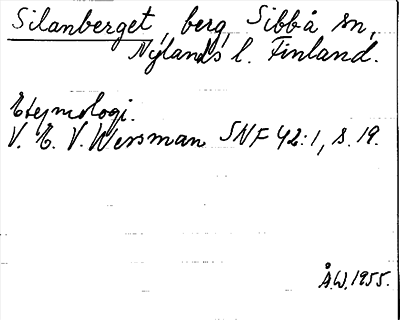 Silanberget, berg, Sibbå sn,
Nylands l. Finland.
Etymologi.
V. E. V. Wessman SNF 42:1, s. 19.
Å.W. 1955.